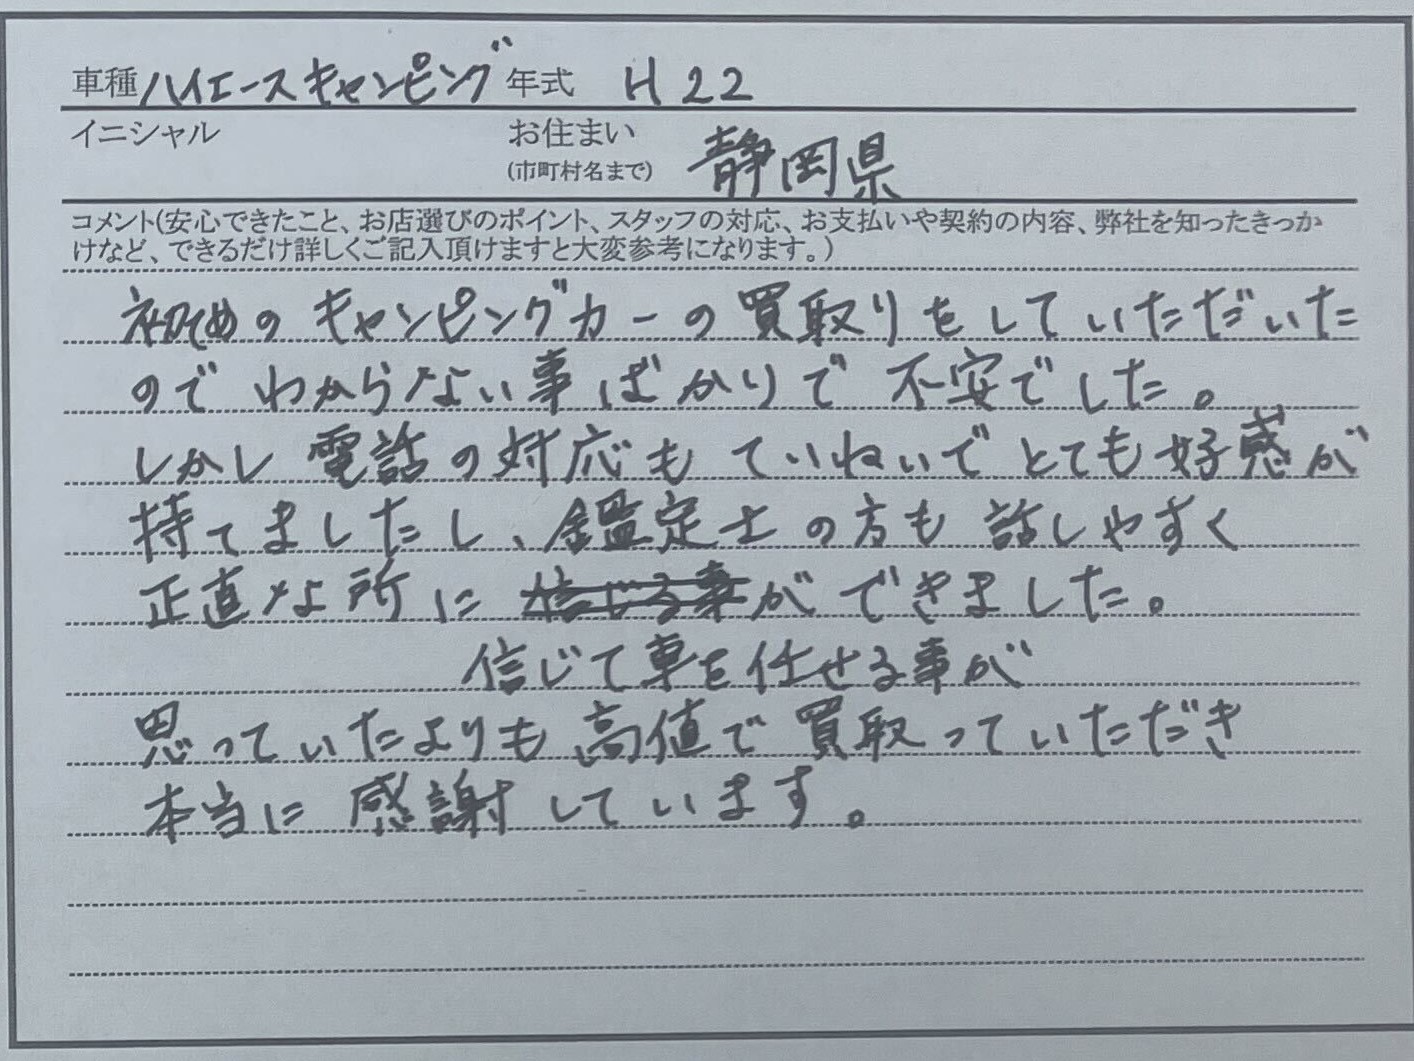 車種 ハイエースキャンピング 年式 H22
イニシャル お住まい 静岡県
(市町村名まで)
コメント(安心できたこと、お店選びのポイント、スタッフの対応、お支払いや契約の内容、弊社を知ったきっか
けなど、できるだけ詳しくご記入頂けますと大変参考になります。)
初めのキャンピングカーの買取りをしていただいた
のでわからない事ばかりで不安でした。
しかし電話の対応もていねいでとても好感が
持てましたし、鑑定士の方も話しやすく
正直な所に信じる事ができました。
信じて車を任せる事が
思っていたよりも高値で買取っていただき
本当に感謝しています。